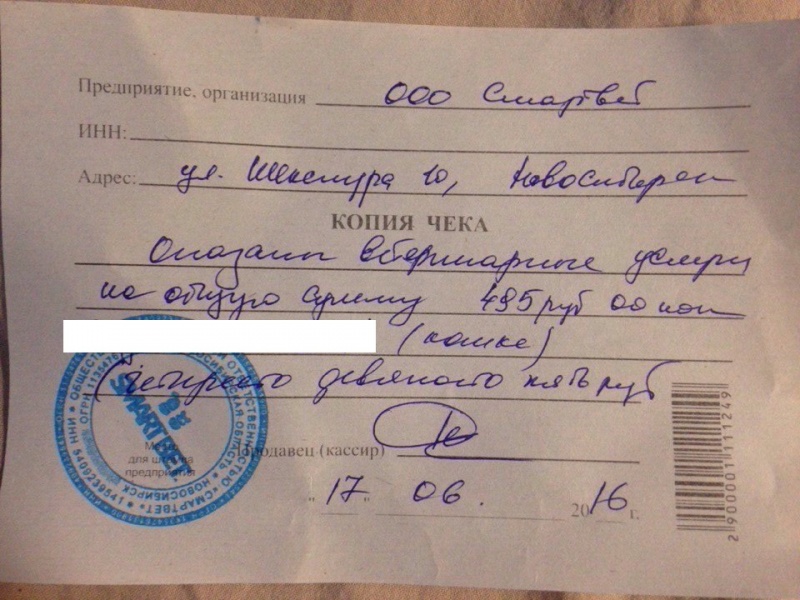 Предприятие, организация ООО Смартвет
ИНН:
Адрес: ул. Шекспира 10, Новосибирск
КОПИЯ ЧЕКА
Оказаны ветеринарные услуги
на общую сумму 495 руб 00 коп
(кошке)
(четыреста девяносто пять руб
Продавец (кассир)
Место
для штампа
предприятия
"17" 06. 2016 г.
SMART ВЕТ
ОБЩЕСТВО ОТВЕТСТВЕННОСТЬЮ «СМАРТВЕТ»
НОВОСИБИРСКАЯ ОБЛАСТЬ
НОВОСИБИРСК
ИНН 5409239541
2 900001 111249